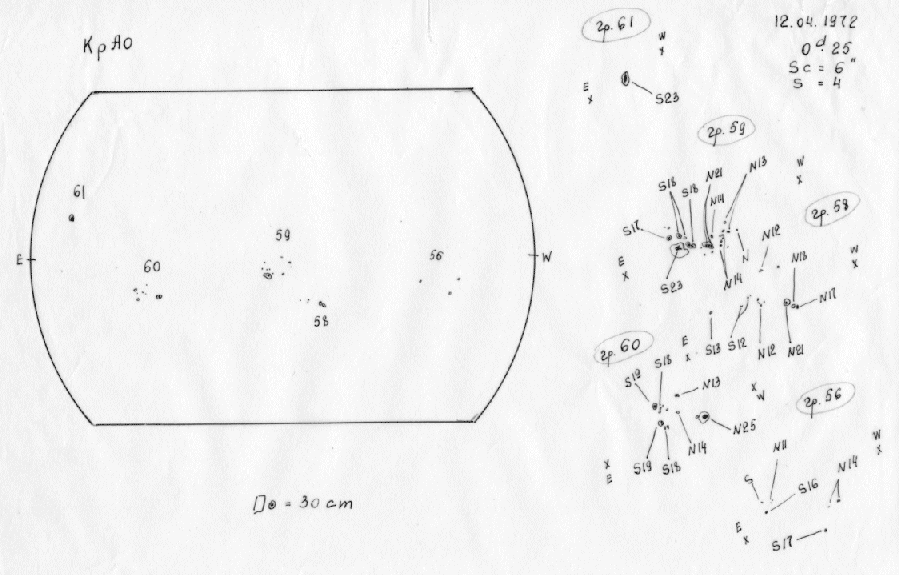 КрАО
61
59
60
56
58
E
W
D☉ = 30 cm
12.04.1972
0d.25
Sc = 6"
S = 4
гр. 61
W
x
E
x
S23
гр. 59
S18
S18
N21
N14
N13
W
x
S17
E
x
S23
N14
N
гр. 58
N12
N18
W
x
N17
E
x
S13
S12
N12
N21
гр. 60
S19
S18
N13
x
W
N25
N14
S19
S18
x
E
гр. 56
W
x
N11
S
S16
N14
E
x
S17